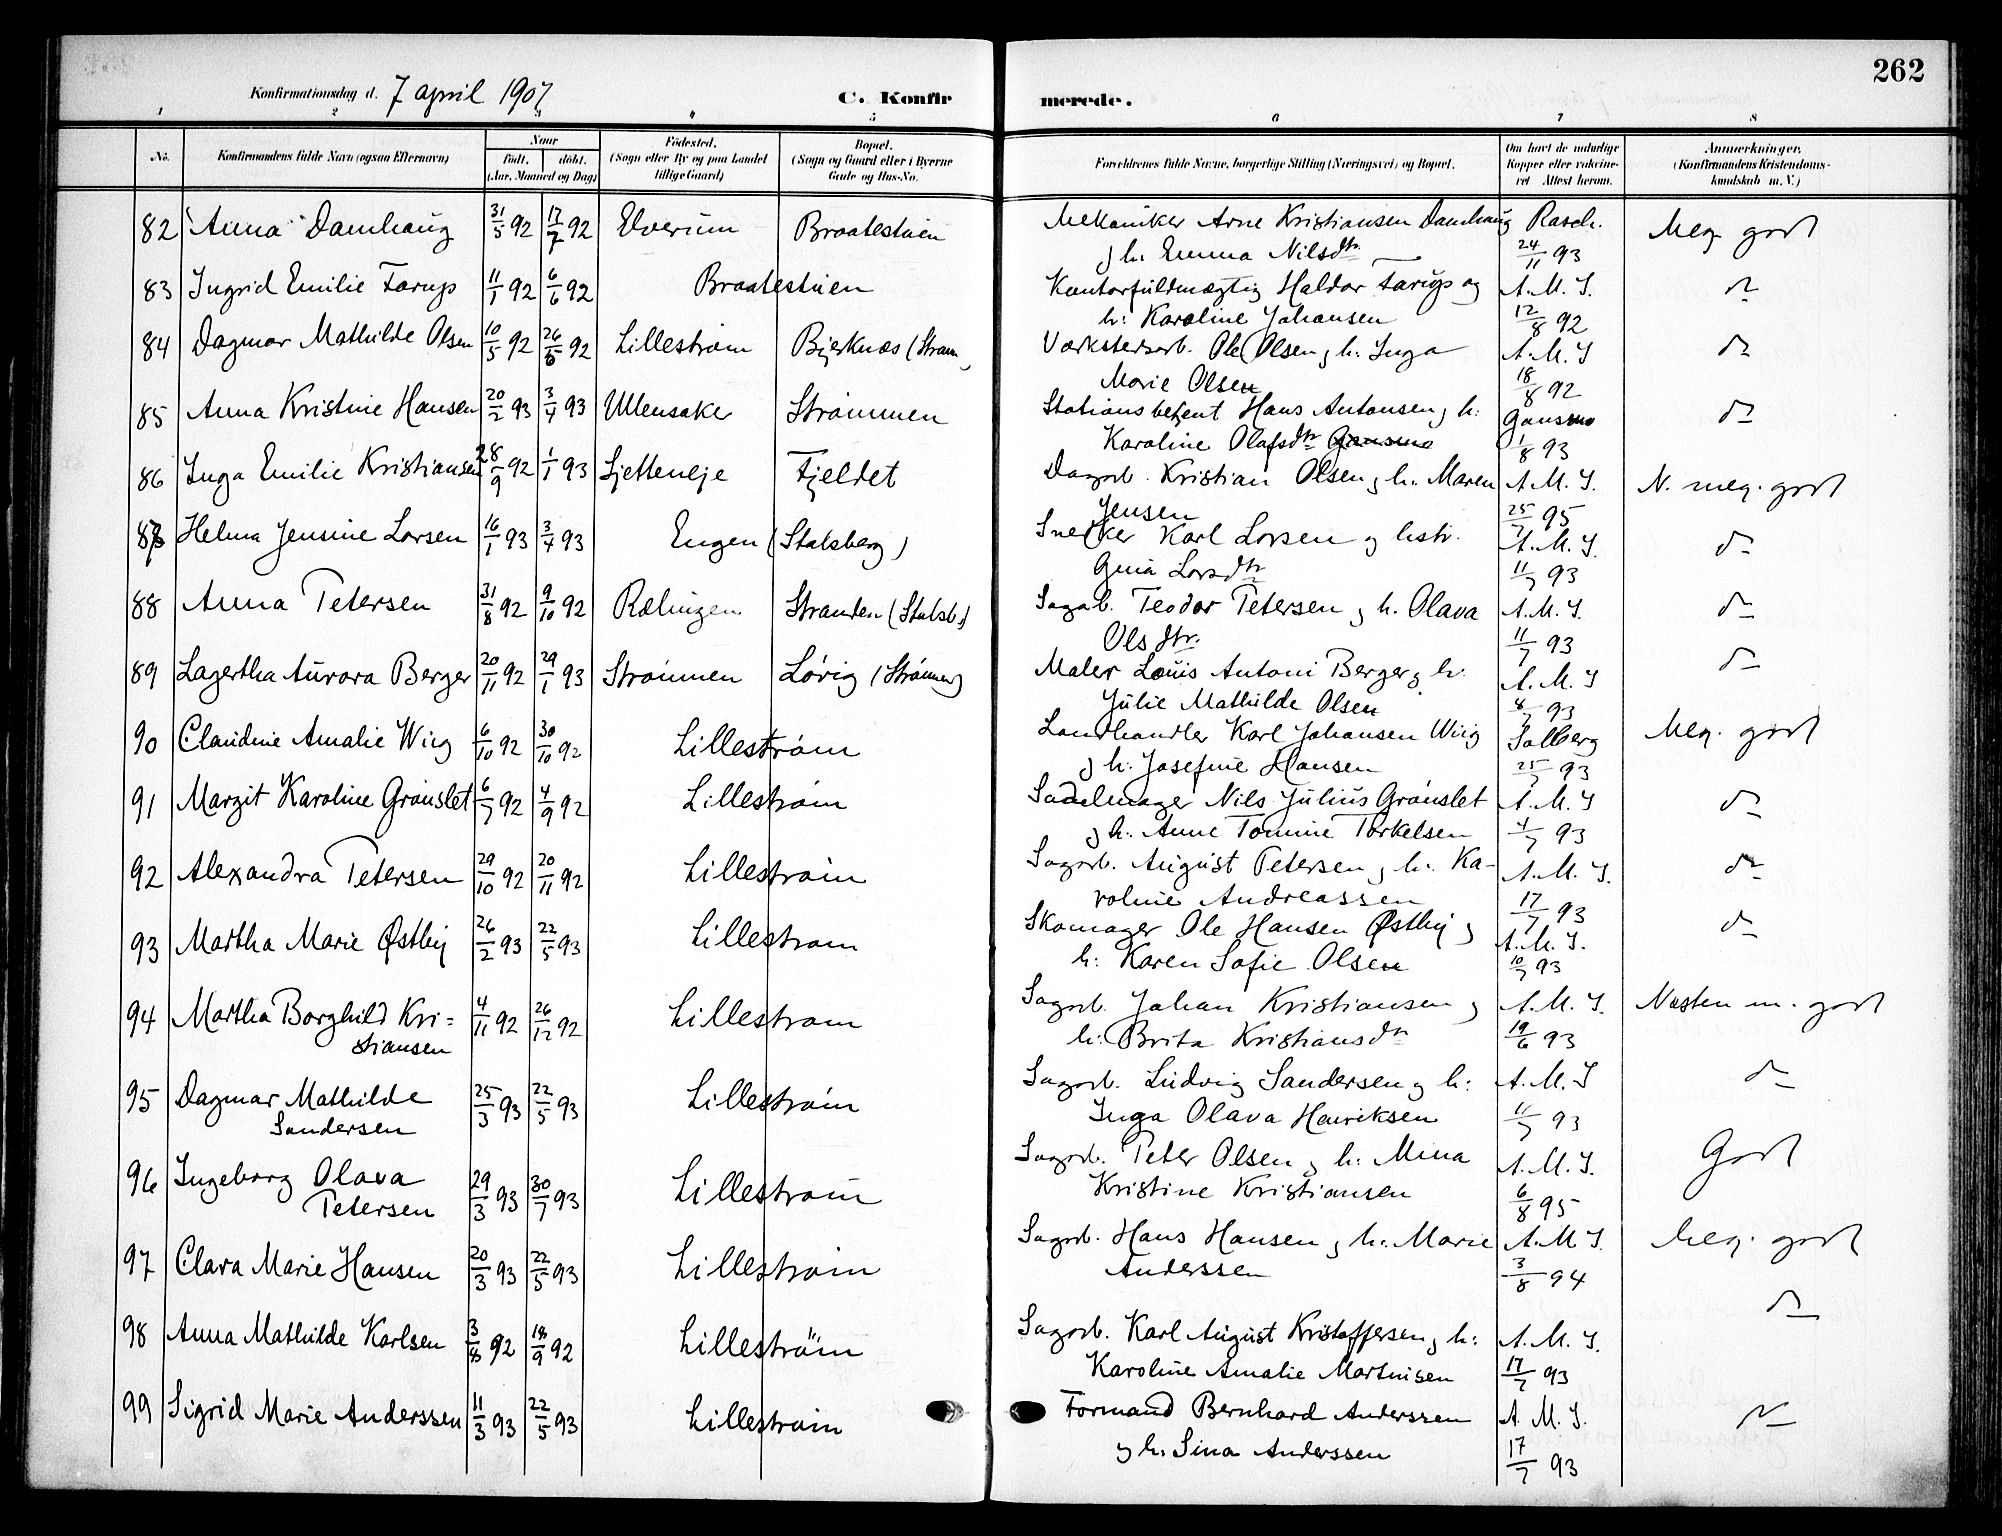 262
Konfirmationsdag d. 7 april 1907
C. Konfirmerede.
1 2 3 4 5 6 7 8
No.
Konfirmandens fulde Navn (ogsaa Efternavn)
Naar
født. døbt.
(Aar, Maaned og Dag)
Fødested.
(Sogn eller By og paa Landet
tillige Gaard)
Bopæl.
(Sogn og Gaard eller i Byerne
Gade og Hus-No.
Forældrenes fulde Navne, borgerlige Stilling (Næringsvei) og Bopæl.
Om havt de naturlige
Kopper eller vaccine-
ret Attest herom.
Anmærkninger,
(Konfirmandens Kristendoms-
kundskab m. V.)
82 Anna Damhaug 31/5 92 17/7 92 Elverum Braatestuen Mekaniker Arne Kristiansen Damhaug Rasch. Meg. godt
g h. Emma Nilsdtr 24/11 93
83 Ingrid Emilie Farup 11/1 92 6/6 92 Braatestuen Kontorfuldmægtig Haldor Farup og A.M.S. do
h: Karoline Johansen 12/8 92
84 Dagmar Mathilde Olsen 10/5 92 26/6 92 Lillestrøm Bjerknæs (Strøm. Værkstedsarb. Ole Olsen g h. Inga A.M.S do
Marie Olsen 18/8 92
85 Anna Kristine Hansen 20/2 93 3/4 93 Ullensaker Strømmen Stationsbetjent Hans Antonsen g h: Gansmo do
Karoline Olafsdtr Gansmo 1/8 93
86 Inga Emilie Kristiansen 28/9 92 1/1 93 Sjetteneje Fjeldet Dagarb. Kristian Olsen g h. Maren A.M.S. N. meg. godt
Jensen 25/7 95
87 Helma Jensine Larsen 16/1 93 3/4 93 Engen (Stalsberg) Snedker Karl Larsen g hstr. A.M.S. do
Gina Larsdtr 11/7 93
88 Anna Petersen 31/8 92 9/10 92 Rælingen Stranden (Stalsb.) Sagarb. Teodor Petersen g h. Olava A.M.S. do
Olsdtr. 11/7 93
89 Lagertha Aurora Berger 20/11 92 29/1 93 Strømmen Løvig (Strømmen) Maler Louis Antoni Berger g h. A.M.S do
Julie Mathilde Olsen 8/7 93
90 Claudine Amalie Wiig 6/10 92 30/10 92 Lillestrøm Landhandler Karl Johansen Wiig Solberg Meg. godt
g h: Josefine Hansen 25/7 93
91 Margit Karoline Grønslet 6/7 92 4/9 92 Lillestrøm Sadelmager Nils Julius Grønslet A.M.S do
g h. Anne Tomine Torkelsen 4/7 93
92 Alexandra Petersen 29/10 92 20/11 92 Lillestrøm Sagarb. August Petersen g h. Ka- A.M.S. do
roline Andreassen 17/7 93
93 Martha Marie Østby 26/2 93 22/5 93 Lillestrøm Skomager Ole Hansen Østby g A.M.S. do
h: Karen Sofie Olsen 10/7 93
94 Martha Borghild Kri= 4/11 92 26/12 92 Lillestrøm Sagarb. Johan Kristiansen g A.M.S. Næsten m. godt
stiansen h: Brita Kristiansdtr 19/6 93
95 Dagmar Mathilde 25/3 93 22/5 93 Lillestrøm Sagarb. Ludvig Sandersen g h: A.M.S do
Sandersen Inga Olava Henriksen 11/7 93
96 Ingeborg Olava 29/3 93 30/7 93 Lillestrøm Sagarb. Peter Olsen g h: Mina A.M.S. Godt
Petersen Kristine Kristiansen 6/8 95
97 Clara Marie Hansen 20/3 93 22/5 93 Lillestrøm Sagarb. Hans Hansen g h: Marie A.M.S. Meg. godt
Anderssen 3/8 94
98 Anna Mathilde Karlsen 3/8 92 18/9 92 Lillestrøm Sagarb. Karl August Kristoffersen g h: A.M.S. do
Karoline Amalie Martinisen 17/7 93
99 Sigrid Marie Anderssen 11/3 93 22/5 93 Lillestrøm Formand Bernhard Anderssen A.M.S.
g h. Lina Anderssen 17/7 93